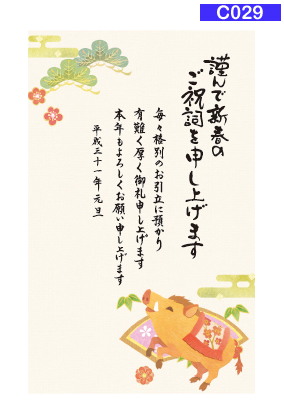 C029
謹んで新春の
ご祝詞を申し上げます
毎々格別のお引立に預かり
有難く厚く御礼申し上げます
本年もよろしくお願い申し上げます
平成三十一年元旦